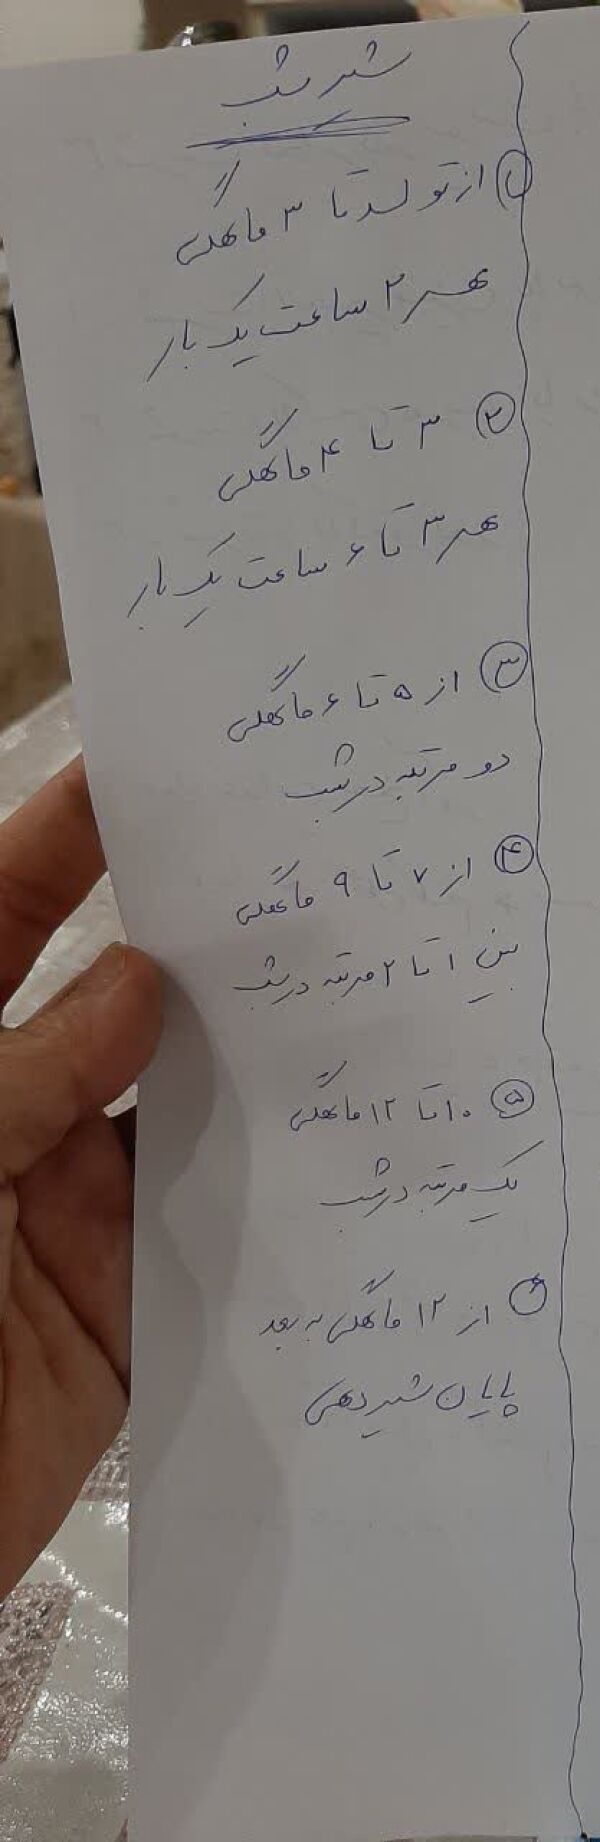 شیر شب
① از تولد تا ۳ ماهگی
هر ۲ ساعت یک بار
② ۳ تا ۴ ماهگی
هر ۳ تا ۶ ساعت یک بار
③ از ۵ تا ۶ ماهگی
دو مرتبه در شب
④ از ۷ تا ۹ ماهگی
بین ۱ تا ۲ مرتبه در شب
⑤ ۱۰ تا ۱۲ ماهگی
یک مرتبه در شب
⑥ از ۱۲ ماهگی به بعد
پایان شیردهی